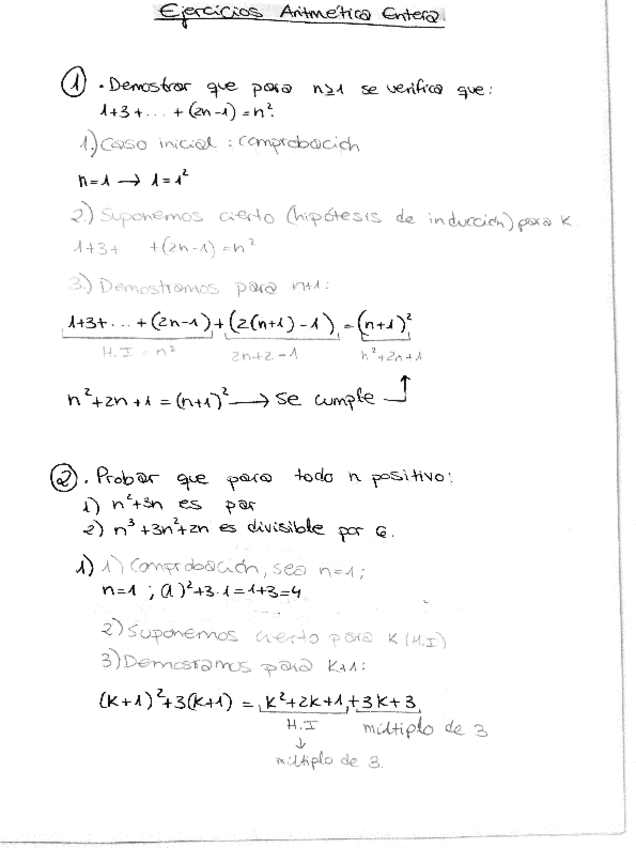 Ejercicios Aritmética Entera.
① . Demostrar que para n≥1 se verifica que:
1+3+...+(2n-1)=n².
1.) Caso inicial: comprobación
n=1 → 1=1²
2.) Suponemos cierto (hipótesis de inducción) para K
1+3+ ..+(2n-1)=n²
3.) Demostramos para n+1:
1+3+...+(2n-1)+(2(n+1)-1)=(n+1)²
H.I = n² 2n+2-1 n²+2n+1
n²+2n+1=(n+1)² → se cumple
② . Probar que para todo n positivo:
1) n²+3n es par
2) n³+3n²+2n es divisible por 6.
1) 1) Comprobación, sea n=1;
n=1 ; (1)²+3·1=1+3=4
2) Suponemos cierto para K (H.I)
3) Demostramos para K+1:
(K+1)²+3(K+1) = K²+2K+1,+3K+3
H.I múltiplo de 3
↓
múltiplo de 3.